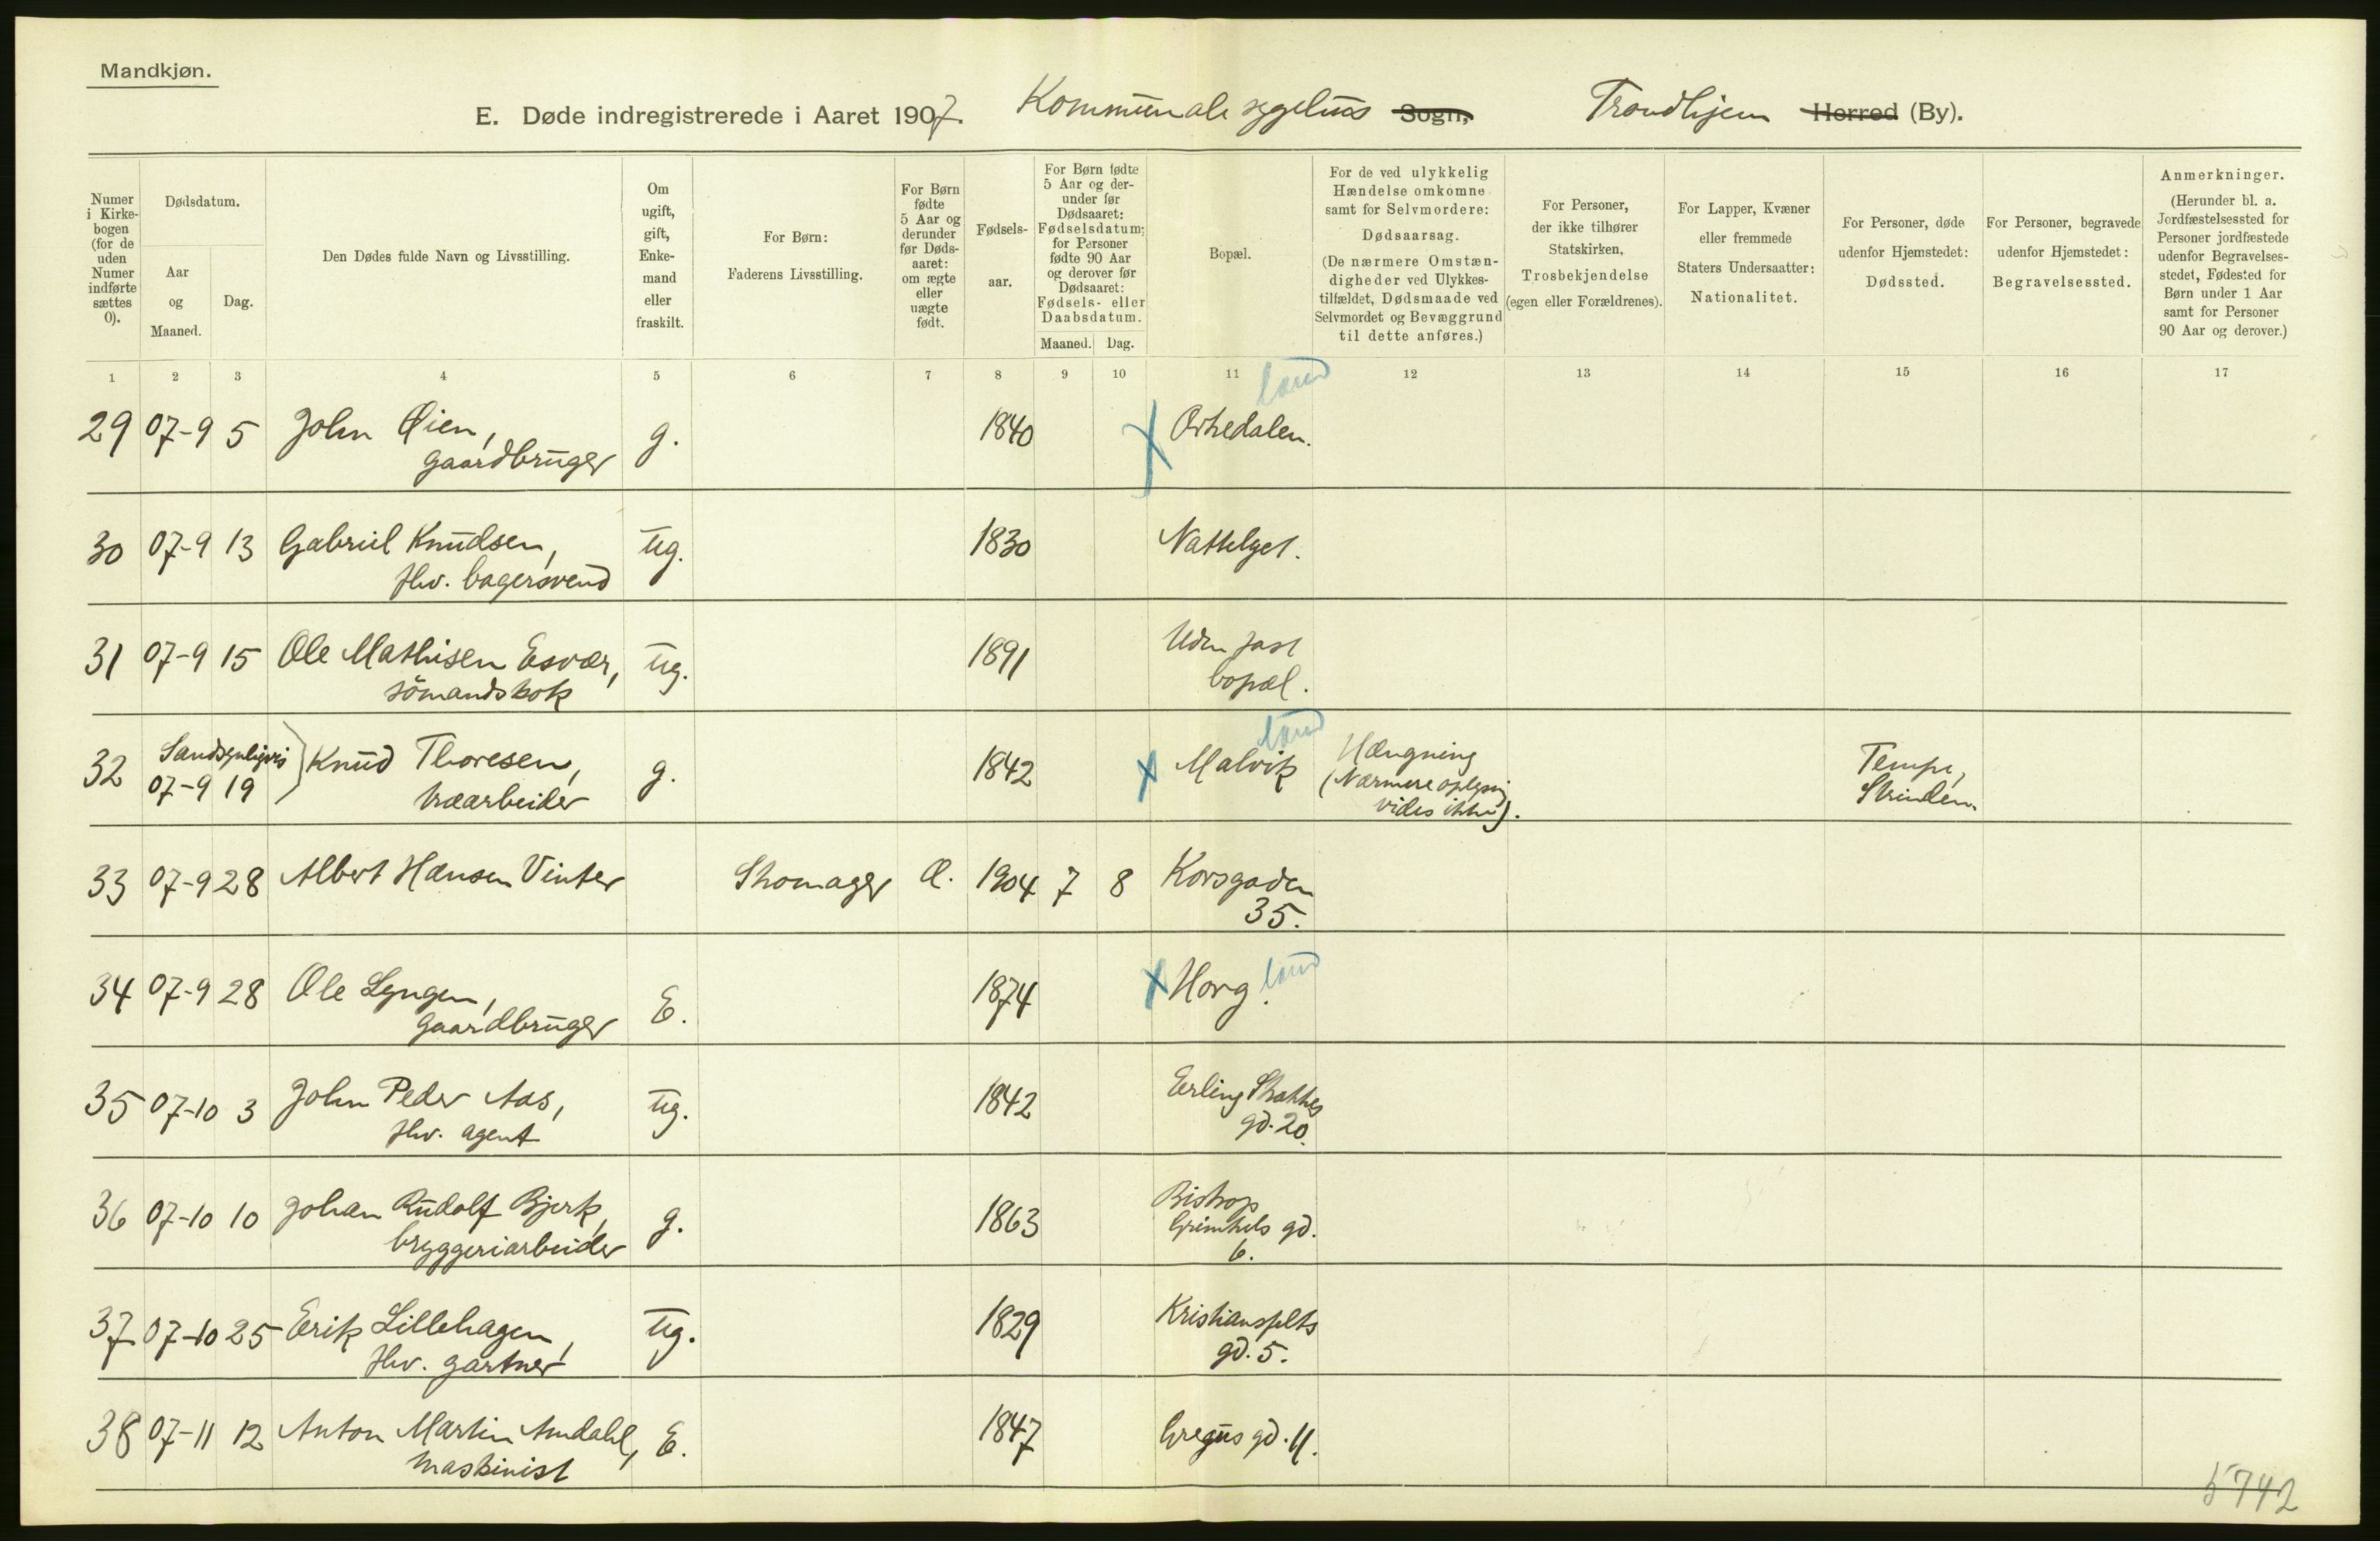 Mandkjøn.
E. Døde indregistrerede i Aaret 1907. Kommunale sygehus Sogn, Trondhjem Herred (By).
Numer i Kirkebogen (for de uden Numer indførte sættes 0).
Dødsdatum.
Aar og Maaned.
Dag.
Den Dødes fulde Navn og Livsstilling.
Om ugift, gift, Enkemand eller fraskilt.
For Børn: Faderens Livsstilling.
For Børn fødte 5 Aar og derunder før Dødsaaret: om ægte eller uægte født.
Fødselsaar.
For Børn fødte 5 Aar og derunder før Dødsaaret: Fødselsdatum; for Personer fødte 90 Aar og derover før Dødsaaret: Fødsels- eller Daabsdatum.
Maaned. Dag.
Bopæl.
For de ved ulykkelig Hændelse omkomne samt for Selvmordere: Dødsaarsag. (De nærmere Omstændigheder ved Ulykkestilfældet, Dødsmaade ved Selvmordet og Bevæggrund til dette anføres.)
For Personer, der ikke tilhører Statskirken, Trosbekjendelse (egen eller Forældrenes).
For Lapper, Kvæner eller fremmede Staters Undersaatter: Nationalitet.
For Personer, døde udenfor Hjemstedet: Dødssted.
For Personer, begravede udenfor Hjemstedet: Begravelsessted.
Anmerkninger. (Herunder bl. a. Jordfæstelsessted for Personer jordfæstede udenfor Begravelsesstedet, Fødested for Børn under 1 Aar samt for Personer 90 Aar og derover.)
1 2 3 4 5 6 7 8 9 10 11 12 13 14 15 16 17
land
29 07-9 5 John Øien, g. 1840 Orkedalen.
gaardbruger
30 07-9 13 Gabriel Knudsen, ug. 1830
fhv. bagersvend
31 07-9 15 Ole Mathisen Esvær, ug. 1891 Uden fast
sömandskok bopæl.
land
32 Sandsynligvis 07-9 19 Knud Thoresen, g. 1842 Malvik Hængning Tempe,
træarbeider (Nærmere oplysning vides ikke). Strinden.
33 07-9 28 Albert Hansen Vinter Skomager Æ. 1904 7 8 Korsgaden
35.
34 07-9 28 Ole Lyngen, E. 1874 Horg. land
gaardbruger
35 07-10 3 John Peder Aas, ug. 1842 Erling Skakkes
fhv. agent gd. 20.
36 07-10 10 Johan Rudolf Bjerk, g. 1863 Biskop
bryggeriarbeider Grimkels gd.
6.
37 07-10 25 Erik Lillehagen, ug. 1829 Kristiansfelts
fhv. gartner gd. 5.
38 07-11 12 Anton Martin Amdahl, E. 1847 Gregus gd. 11.
maskinist
5742